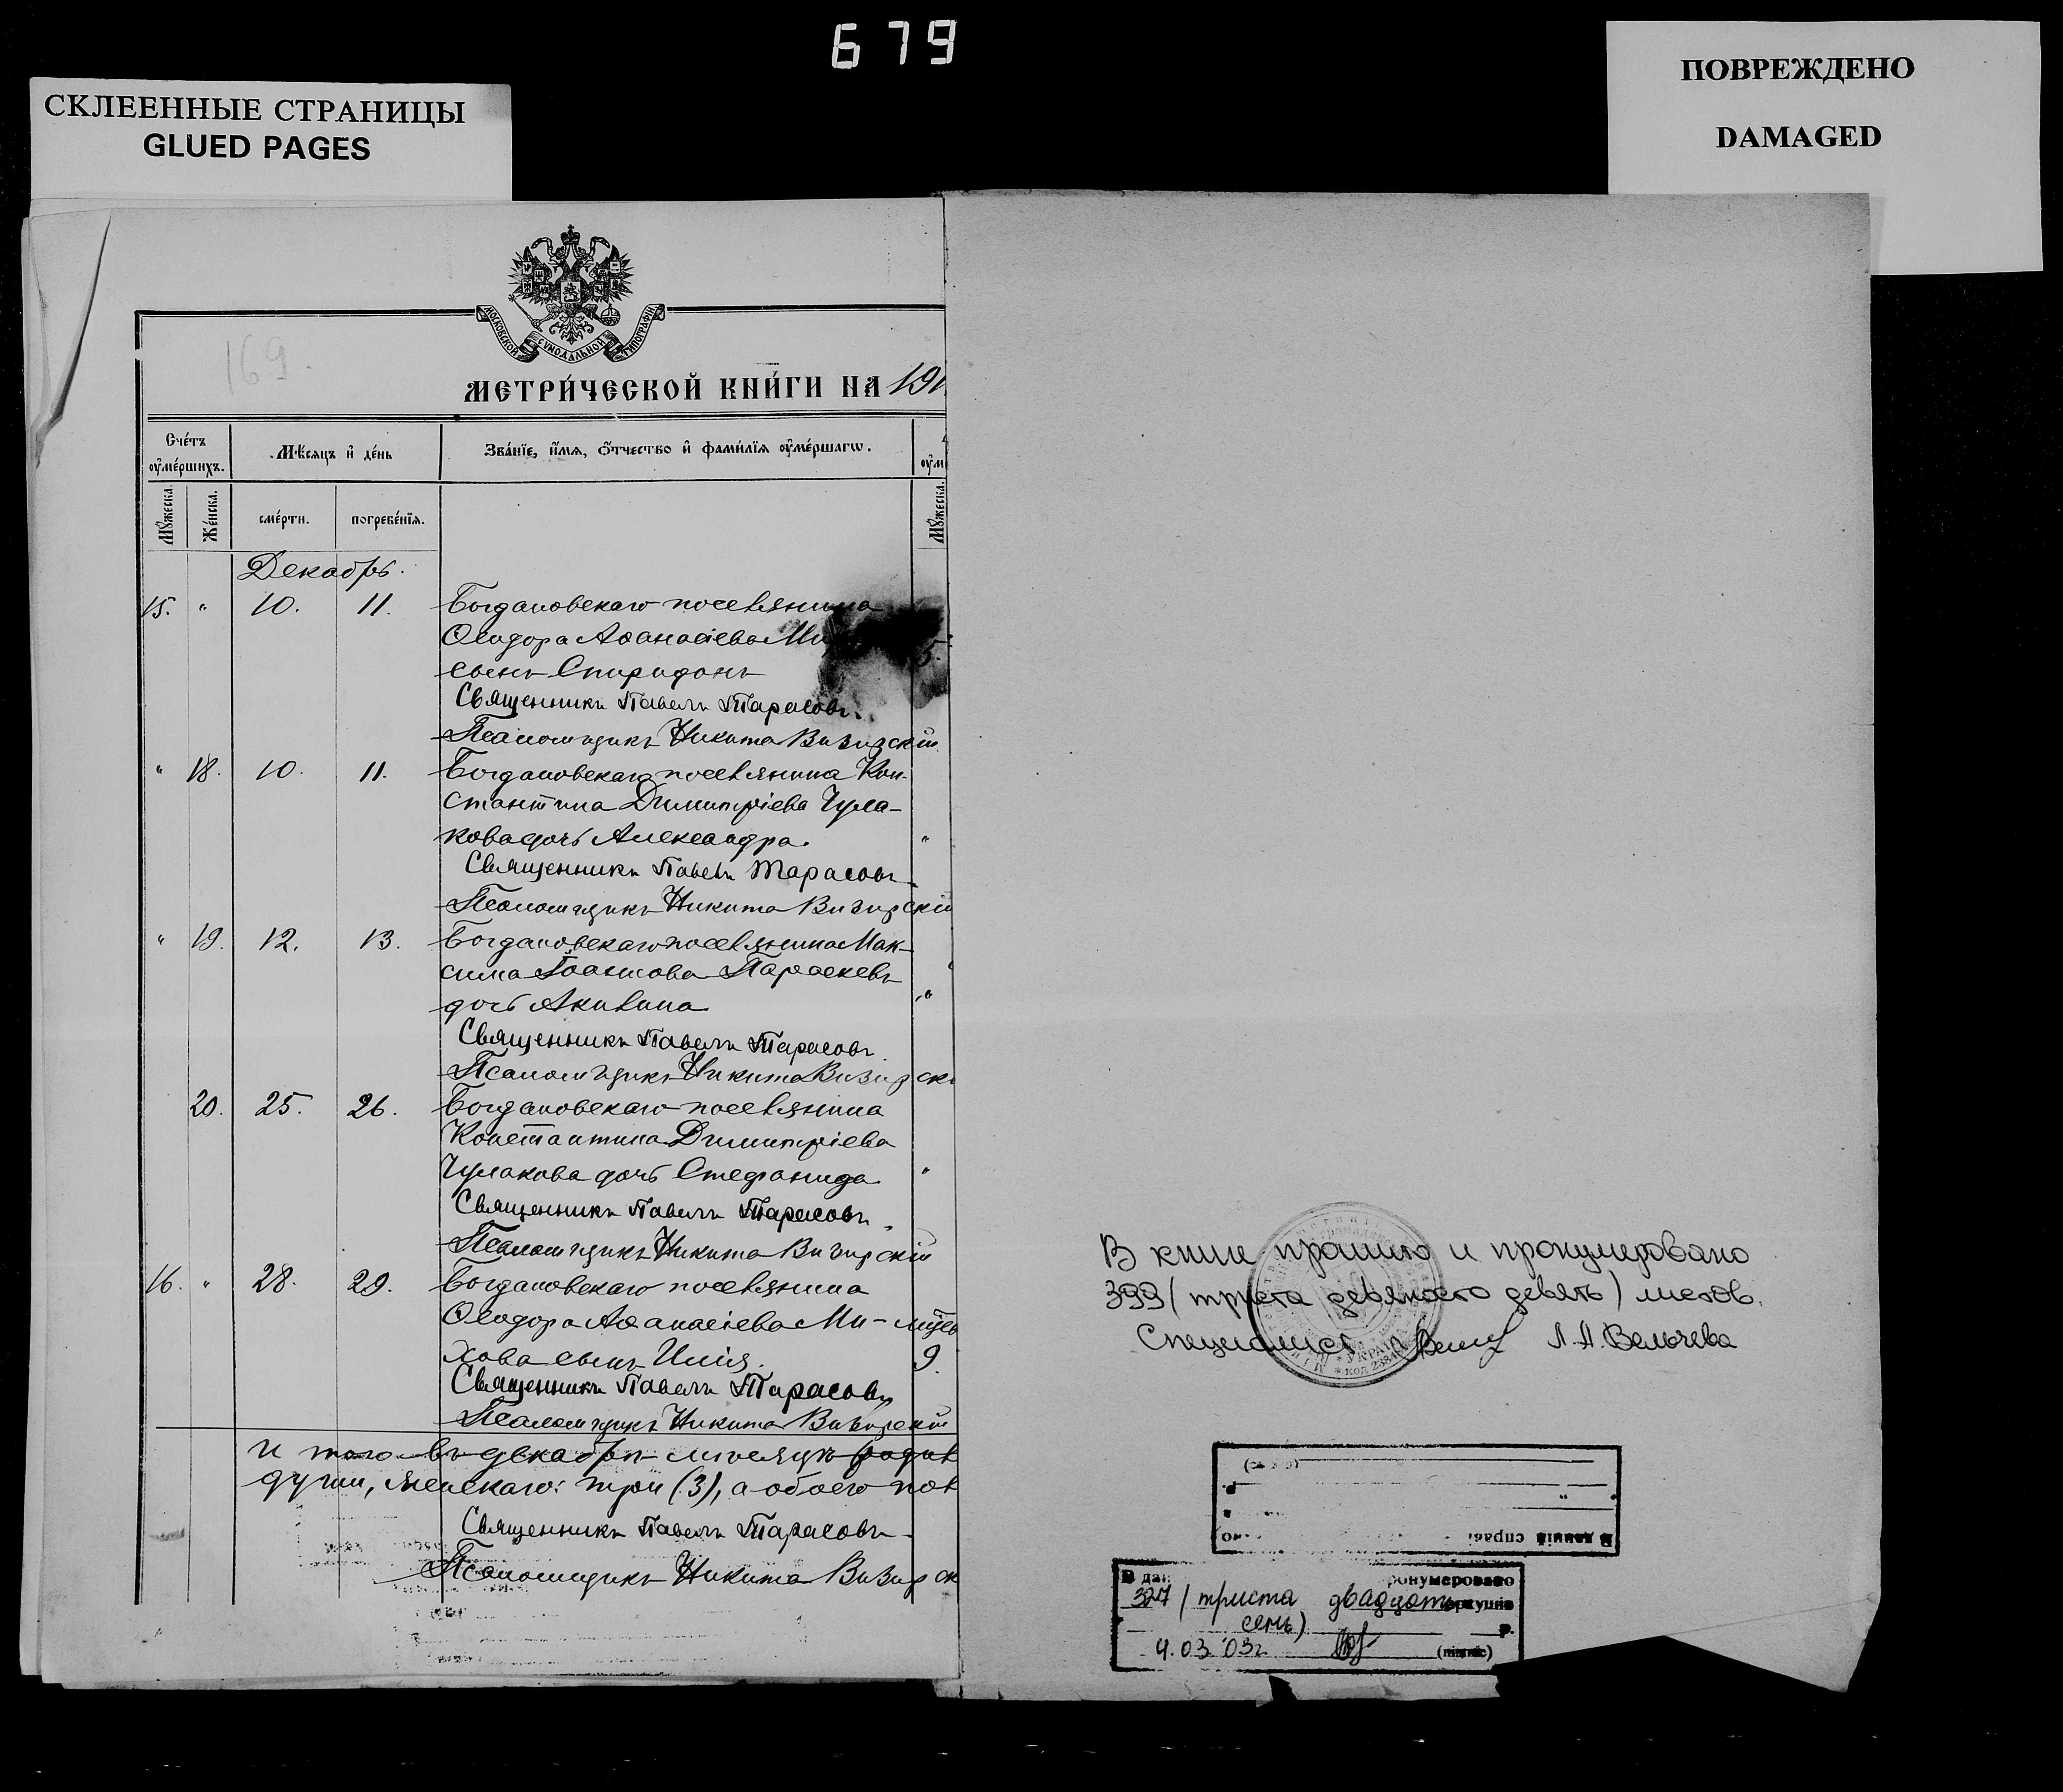 679
СКЛЕЕННЫЕ СТРАНИЦЫ
GLUED PAGES
ПОВРЕЖДЕНО
DAMAGED
МОСКОВСКОЙ СѴНОДАЛЬНОЙ ТИПОГРАФІИ
169.
МЕТРИ́ЧЕСКОЙ КНИ́ГИ НА 191
Сче́тъ оу҆ме́ршихъ.
Мѣ́сяцъ и҆ де́нь
Зва́нїе, и҆́мѧ, ѻ҆́тчество и҆ фами́лїѧ оу҆ме́ршагѡ.
Мꙋ́жеска.
Же́нска.
сме́рти.
погребе́нїѧ.
Мꙋ́жеска.
Декабрь.
15. " 10. 11. Богдановскаго поселянина
Ѳеодора Аѳанасіева Ми
сынъ Спиридонъ 5.
Священникъ Павелъ Тарасовъ.
Псаломщикъ Никита Визирскій
" 18. 10. 11. Богдановскаго поселянина Кон-
стантина Димитріева Чула-
кова дочь Александра. "
Священникъ Павелъ Тарасовъ
Псаломщикъ Никита Визирскій
" 19. 12. 13. Богдановскаго поселянина Мак-
сима Іоаннова Параскевъ
дочь Акилина "
Священникъ Павелъ Тарасовъ.
Псаломщикъ Никита Визирскі
20. 25. 26. Богдановскаго поселянина
Константина Димитріева
Чулакова дочь Стефанида "
Священникъ Павелъ Тарасовъ.
Псаломщикъ Никита Визирскій
16. " 28. 29. Богдановскаго поселянина
Ѳеодора Аѳанасіева Ми-
хова сынъ Илія. 9.
Священникъ Павелъ Тарасовъ
Псаломщикъ Никита Визирскій
Итого въ декабрѣ мѣсяцѣ
душъ, женскаго: три (3), а обоего пол
Священникъ Павелъ Тарасовъ
Псаломщикъ Никита Визирск
В книге прошито и пронумеровано
399 (триста девяносто девять) листов.
Специалист Л.А. Вельчева
УКРАЇ
В даній справі
В да ронумеровано
327 (триста двадцать аркушів
семь) р.
4.03.03г. (підпис)